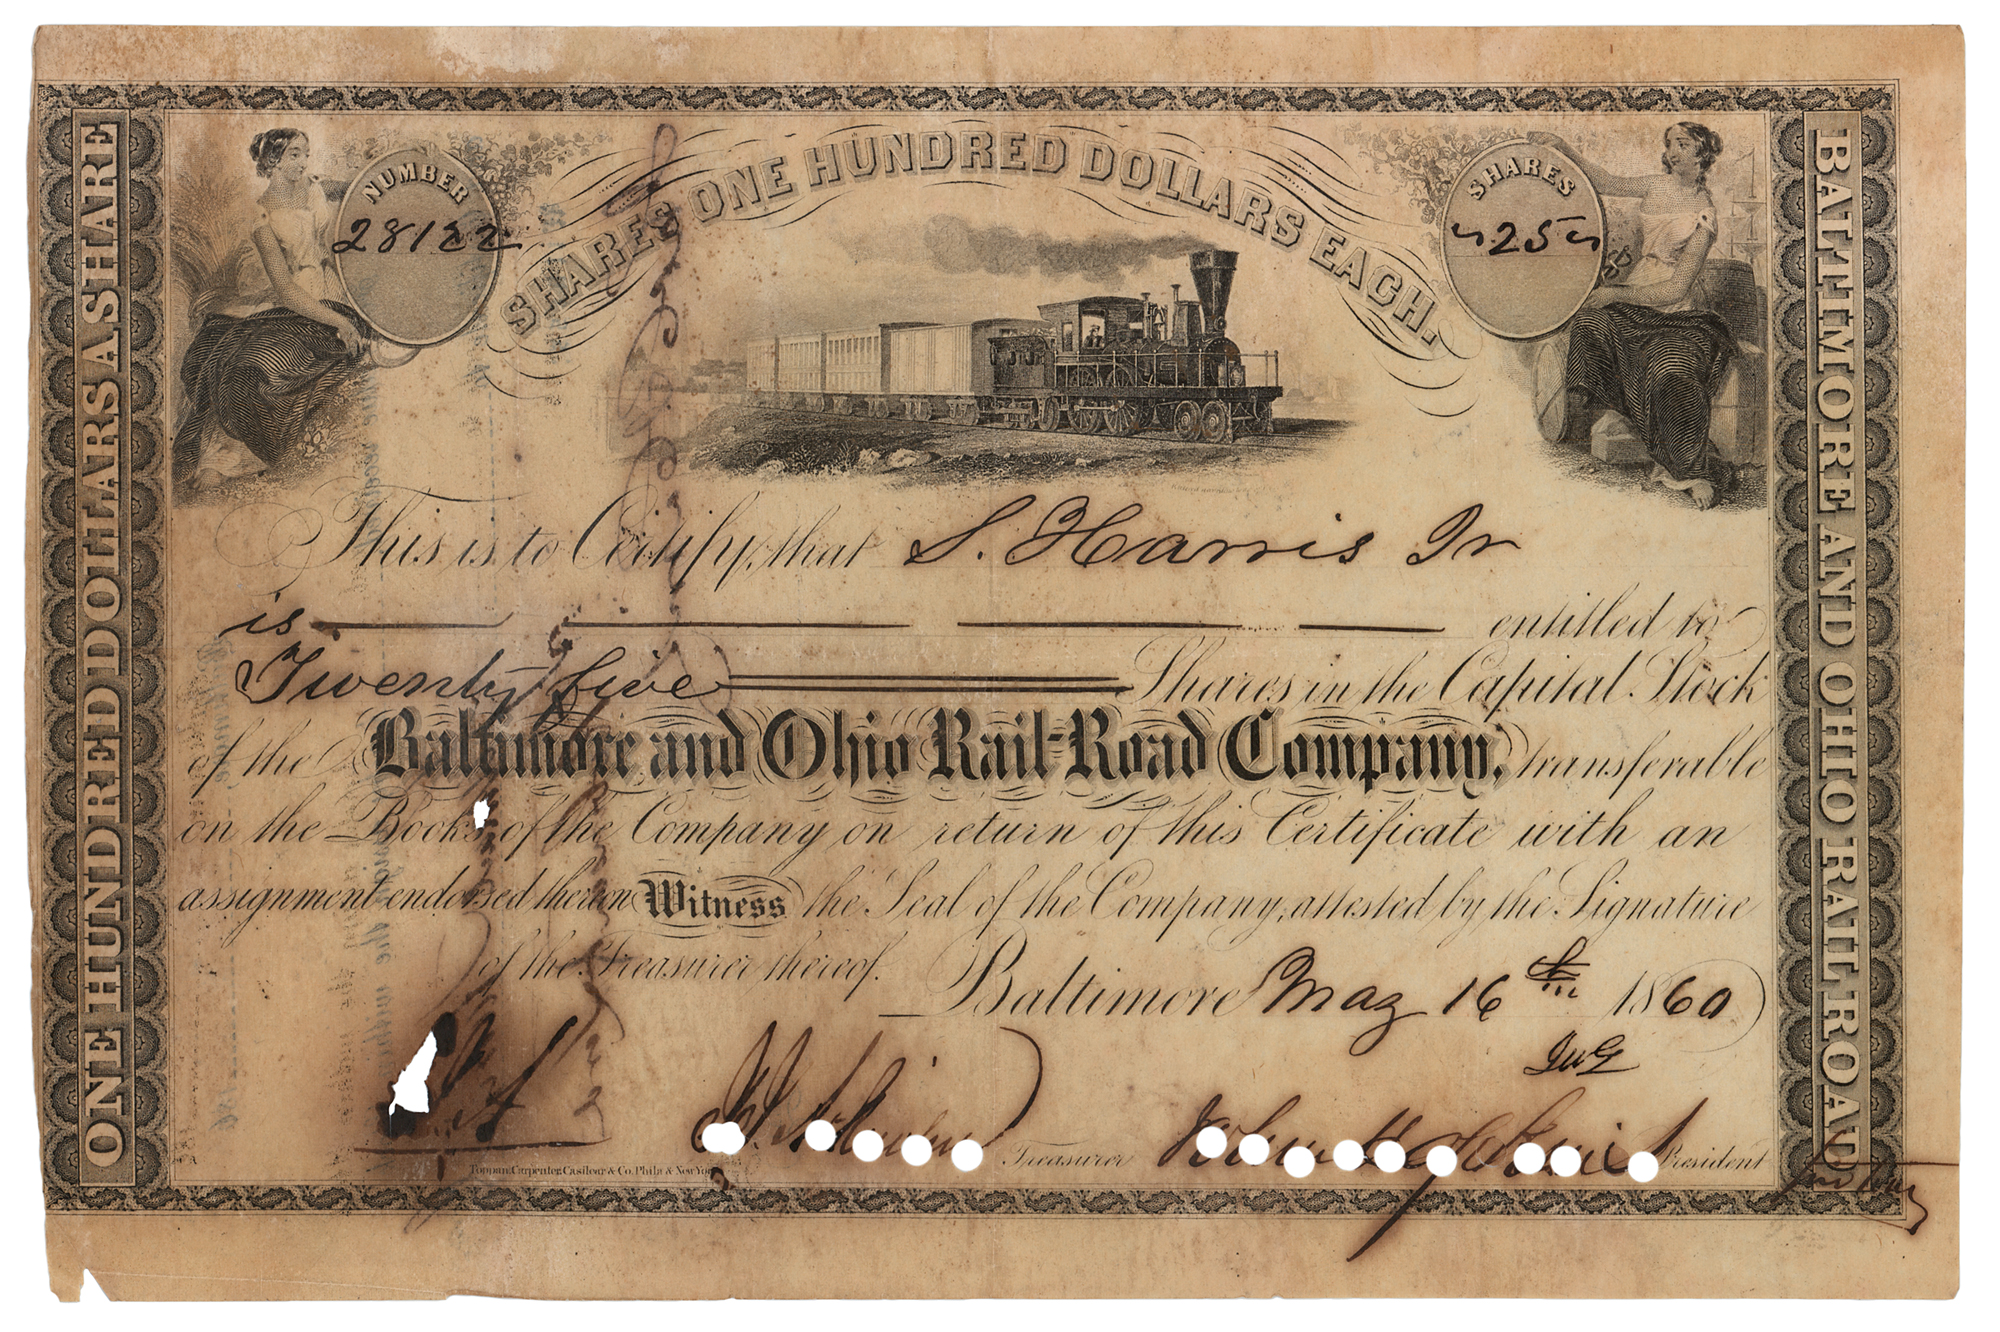 SHARES ONE HUNDRED DOLLARS EACH.
NUMBER
28122
SHARES
25
ONE HUNDRED DOLLARS A SHARE
BALTIMORE AND OHIO RAIL ROAD
This is to Certify, that S. Harris Jr
is entitled to
Twenty five Shares in the Capital Stock
of the Baltimore and Ohio Rail-Road Company, transferable
on the Books of the Company on return of this Certificate with an
assignment endorsed thereon Witness the Seal of the Company, attested by the Signature
of the Treasurer thereof.
Baltimore May 16th 1860
Treasurer
John Hopkins President
Toppan, Carpenter, Casilear & Co. Phila & New York